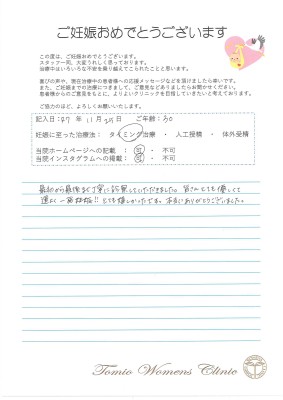 ご妊娠おめでとうございます
この度は、ご妊娠おめでとうございます。
スタッフ一同、大変うれしく思っております。
治療中はいろいろな不安を乗り越えてこられたことと思います。
喜びの声や、現在治療中の患者様への応援メッセージなどを頂けましたら幸いです。
また、ご妊娠までの治療につきまして、ご意見などありましたらお聞かせください。
患者様からのご意見をもとに、よりよいクリニックを目指していきたいと考えております。
ご協力のほど、よろしくお願いいたします。
記入日: 年 11月 日 ご年齢:30
妊娠に至った治療法: タイミング治療 ・ 人工授精 ・ 体外受精
当院ホームページへの記載 : 可 ・ 不可
当院インスタグラムへの掲載 : 可 ・ 不可
最初から最後まで丁寧に していただきました。皆さんとても優しくて
妊娠!! とても嬉しかったです。本当にありがとうございました。
Tomio Womens Clinic